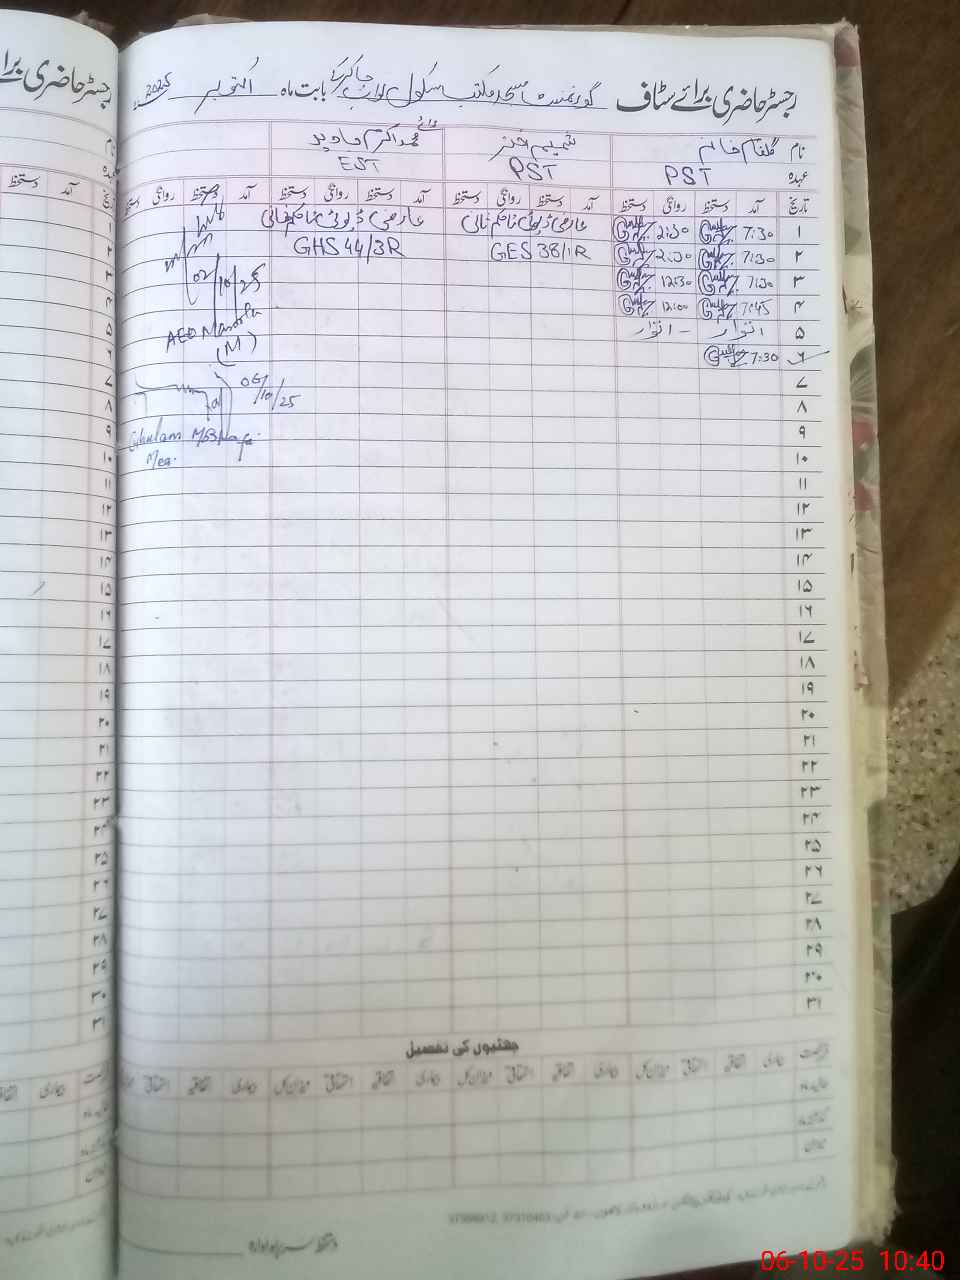 رجسٹر حاضری برائے سٹاف گورنمنٹ مسجد مکتب سکول نواب جاگیر بابت ماہ اکتوبر 2025
نام گلفام خانم شمیم اختر محمد اکرم جاوید
عہدہ PST PST EST
تاریخ آمد دستخط روانگی دستخط آمد دستخط روانگی دستخط آمد دستخط روانگی دستخط آمد دستخط روانگی دستخط
۱ 7:30 2:30 عارضی ڈیوٹی تا حکم ثانی عارضی ڈیوٹی تا حکم ثانی
۲ 7:30 2:30 GES 38/1R GHS 44/3R
۳ 7:30 12:30 02/10/25
۴ 7:45 12:00 AEO
۵ اتوار - اتوار (M)
۶ 7:30
۷ 06/10/25
۸
۹ Ghulam
۱۰ Mea.
۱۱
۱۲
۱۳
۱۴
۱۵
۱۶
۱۷
۱۸
۱۹
۲۰
۲۱
۲۲
۲۳
۲۴
۲۵
۲۶
۲۷
۲۸
۲۹
۳۰
۳۱
چھٹیوں کی تفصیل
بیماری اتفاقیہ استحقاقی میزان کل بیماری اتفاقیہ استحقاقی میزان کل بیماری اتفاقیہ استحقاقی میزان کل بیماری اتفاقیہ استحقاقی
دستخط سربراہ ادارہ
06-10-25 10:40